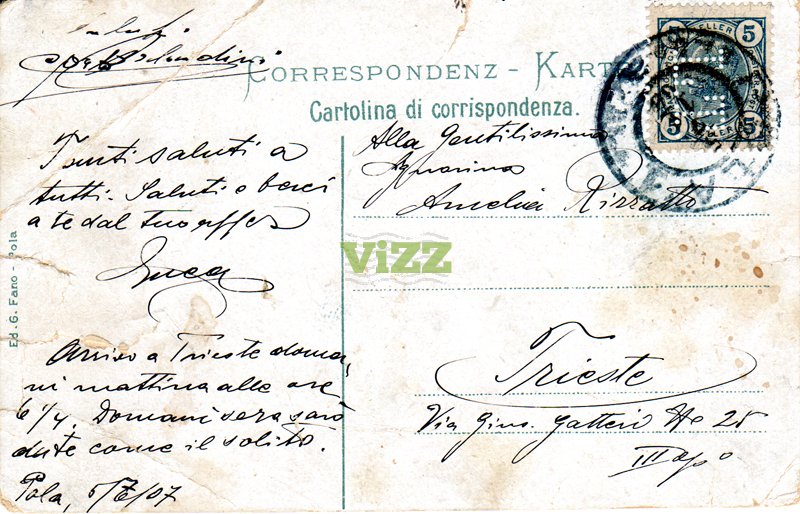 Saluti
CORRESPONDENZ - KARTE
Cartolina di corrispondenza.
5 HELLER 5
5 5
Tanti saluti a
tutti. Saluti e baci
a te dal tuo affez
Alla Gentilissima
Signorina
Amelia Rizzatto
ViZZ
Ed. G. Fano - Pola
Arrivo a Trieste doma-
ni mattina alle ore
6 1/4. Domani sera sarò
da te come il solito.
Pola, 5/7/07
Trieste
Via Giov. Gatteri No 25
III